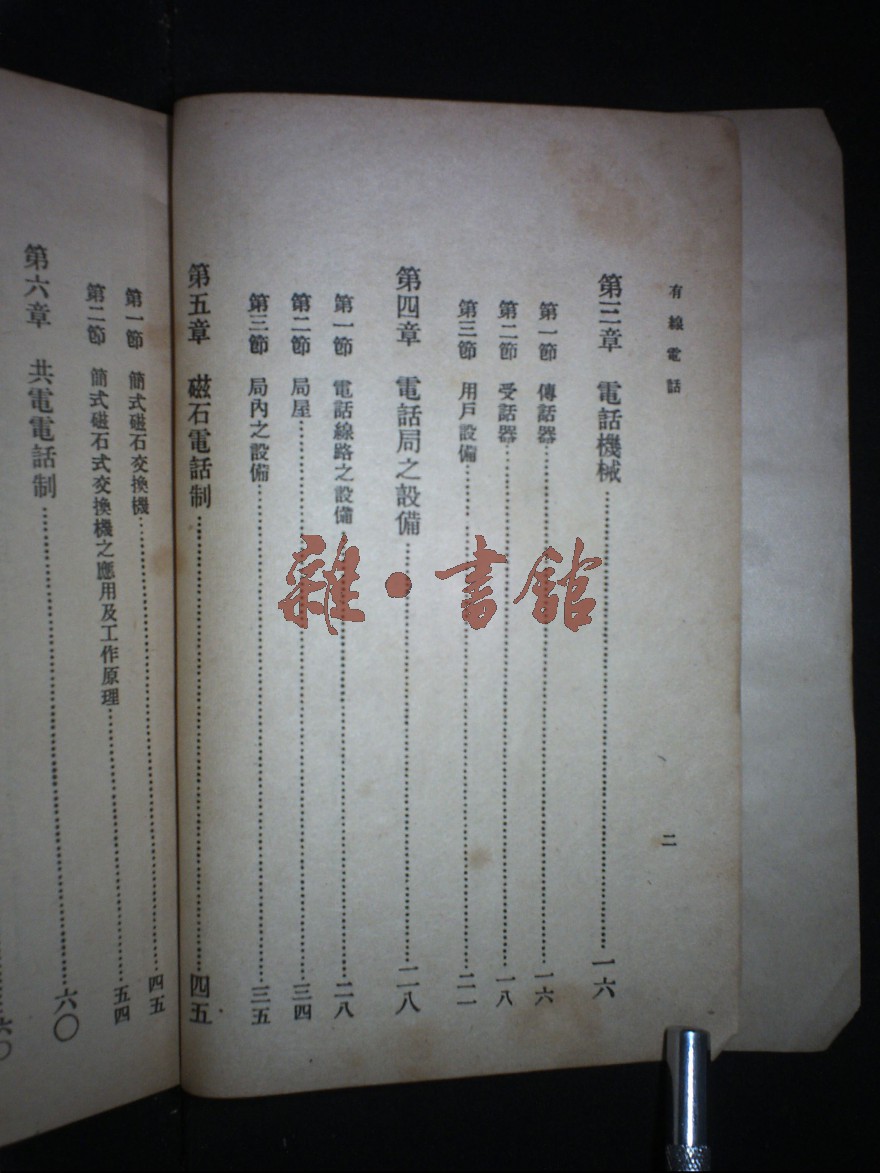 有線電話
二
第三章 電話機械……一六
第一節 傳話器……一六
第二節 受話器……一八
第三節 用戶設備……二一
第四章 電話局之設備……二八
第一節 電話線路之設備……二八
第二節 局屋……三四
第三節 局內之設備……三五
第五章 磁石電話制……四五
第一節 簡式磁石交換機……四五
第二節 簡式磁石式交換機之應用及工作原理……五四
第六章 共電電話制……六〇
六〇
雜·書館